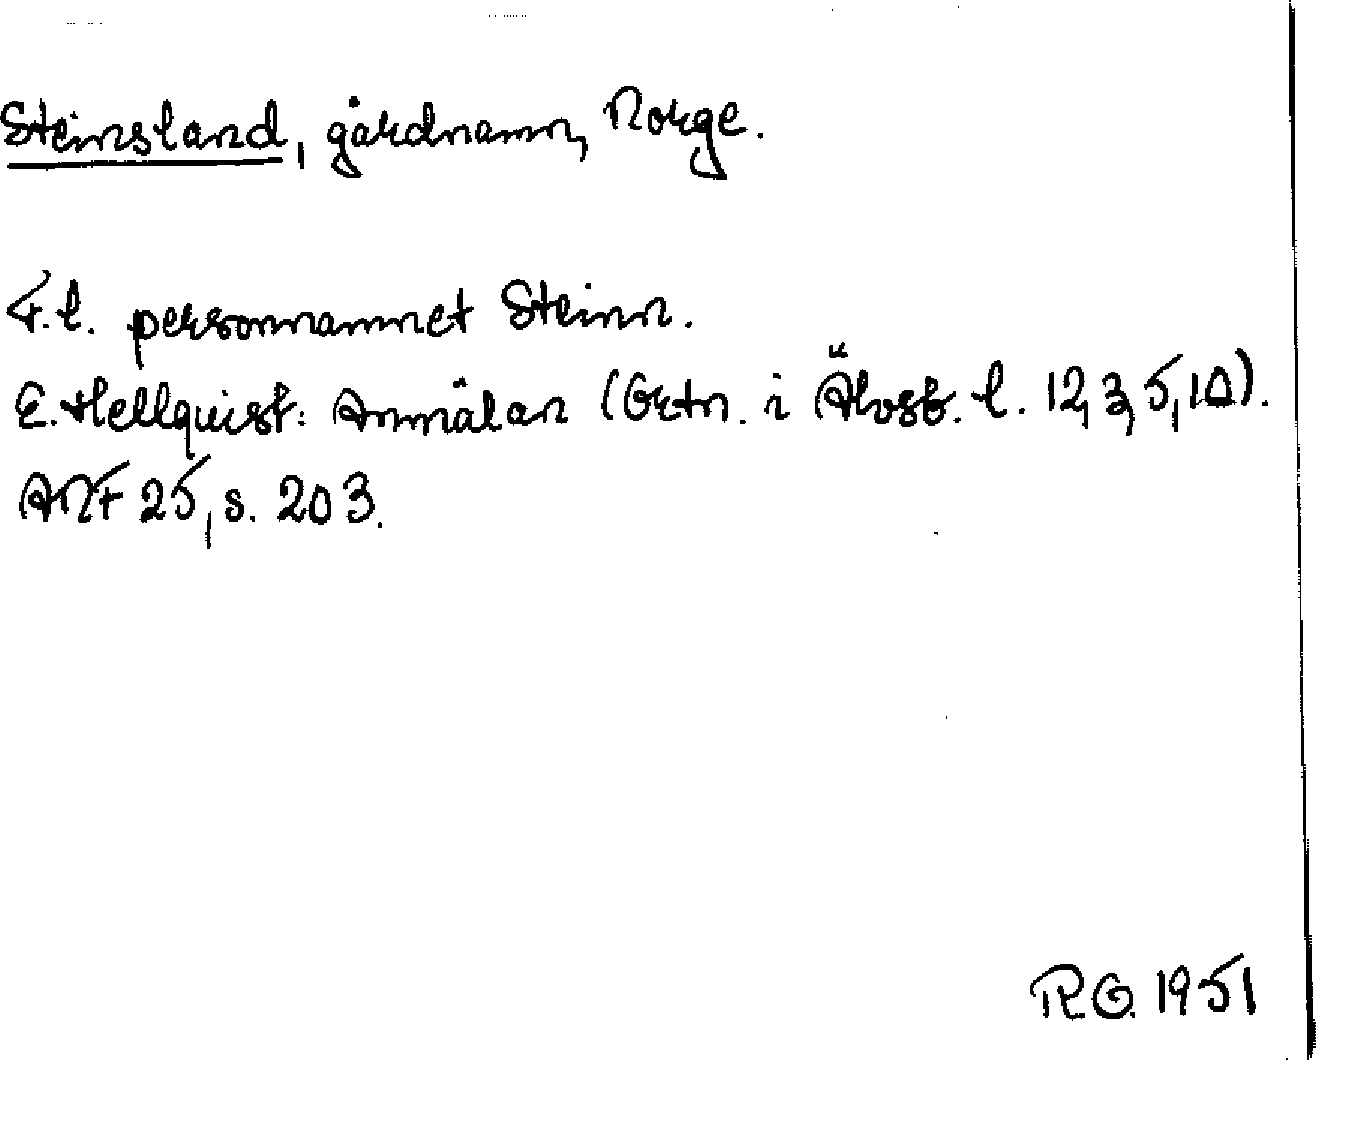 Steinsland, gårdnamn, Norge.
F.l. personnamnet Steinn.
E. Hellquist: Anmälan (Ortn. i Älvsb. l. 12, 3, 5, 10).
ANF 25, s. 203.
RG. 1951